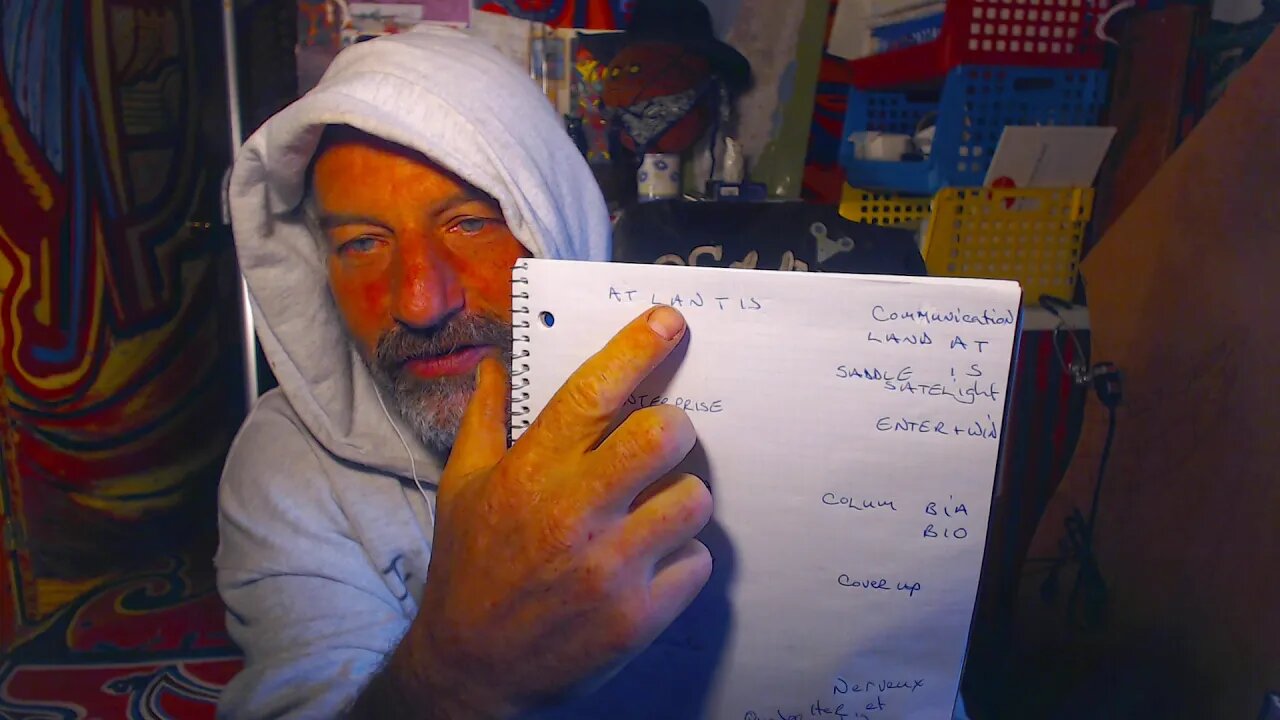 ATLANTIS
Communication
LAND AT
SADDLE IS
SATELight
NTERPRISE
ENTER + WIN
COLUM BIA
BIO
Cover up
Nerveux
et